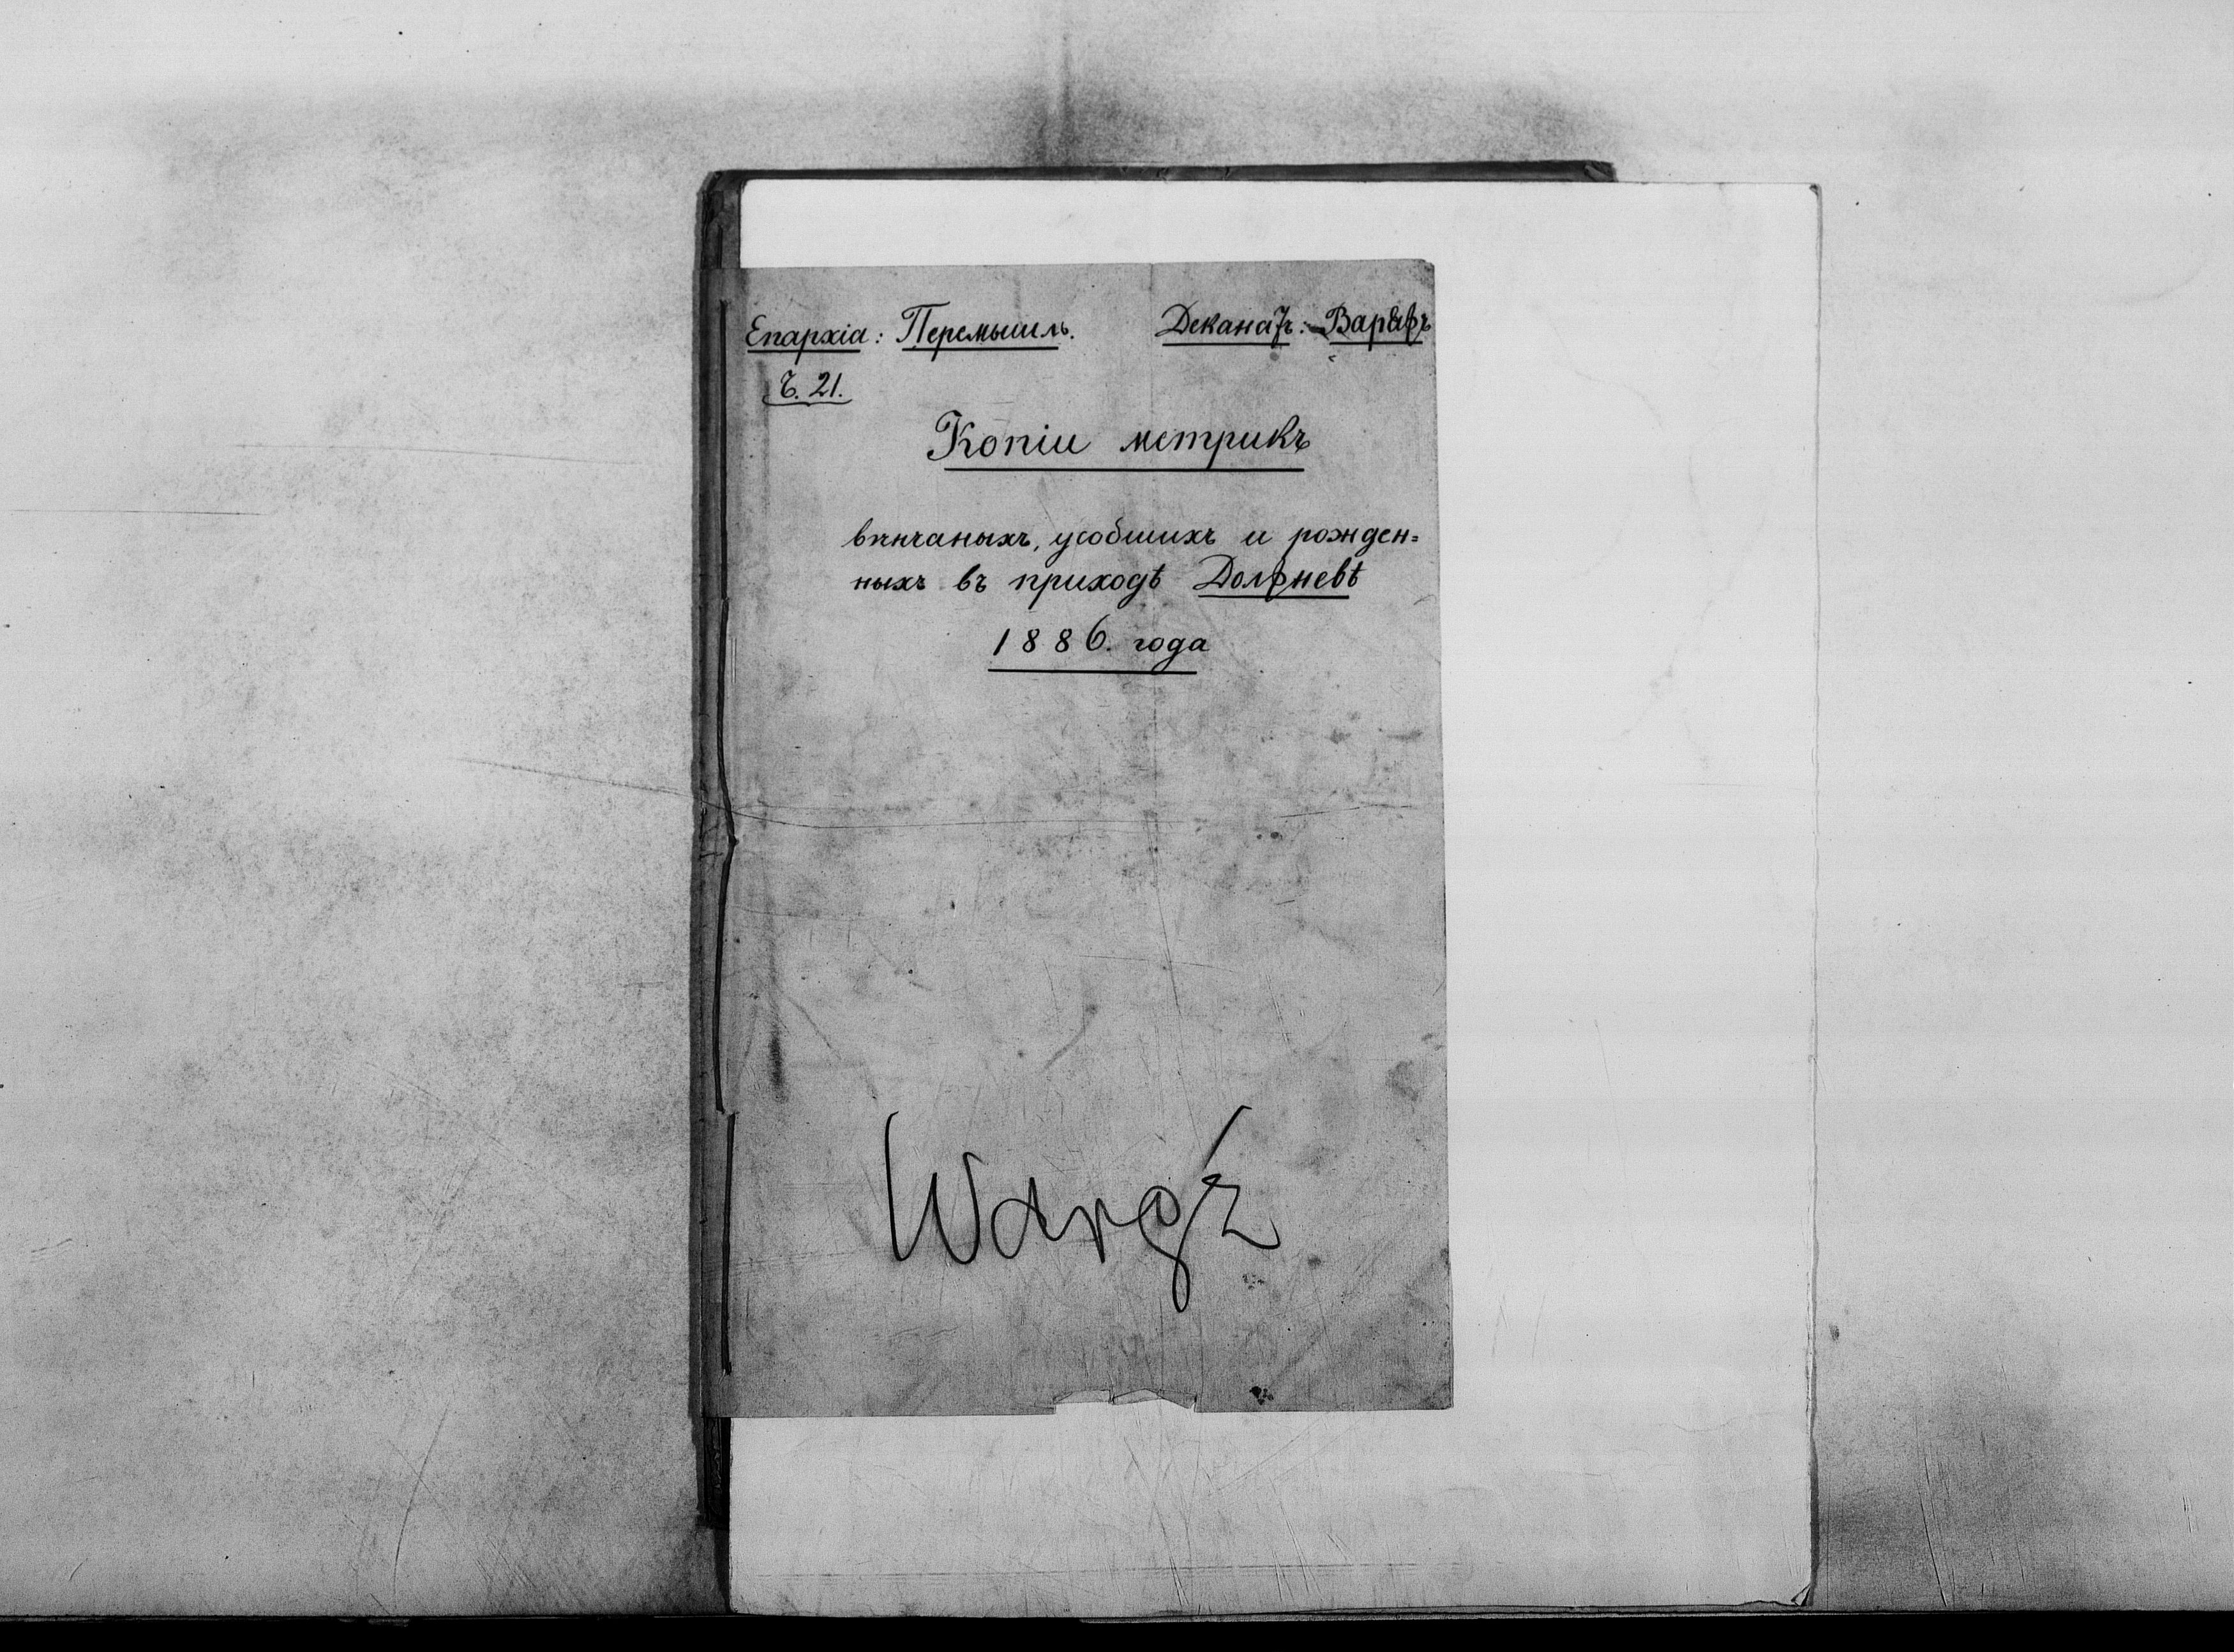 Епархія: Перемышль. Деканатъ: Варяжъ
Ч. 21.
Копіи метрикъ
вѣнчаныхъ, усобшихъ и рожден=
ныхъ въ приходѣ Должневѣ
1886. года
Waręż